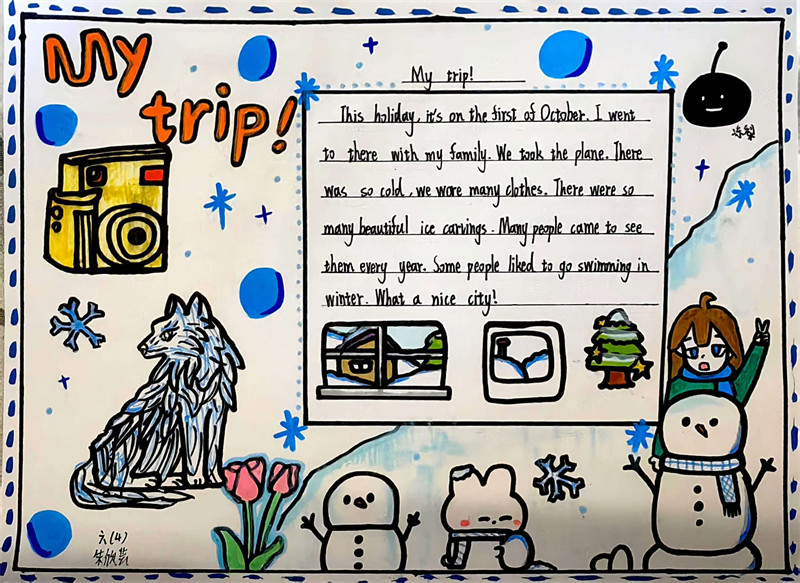 My
trip!
My trip!
This holiday, it's on the first of October. I went
to there with my family. We took the plane. There
was so cold, we wore many clothes. There were so
many beautiful ice carvings. Many people came to see
them every year. Some people liked to go swimming in
winter. What a nice city!
冻梨
六(4)
朱欣芸